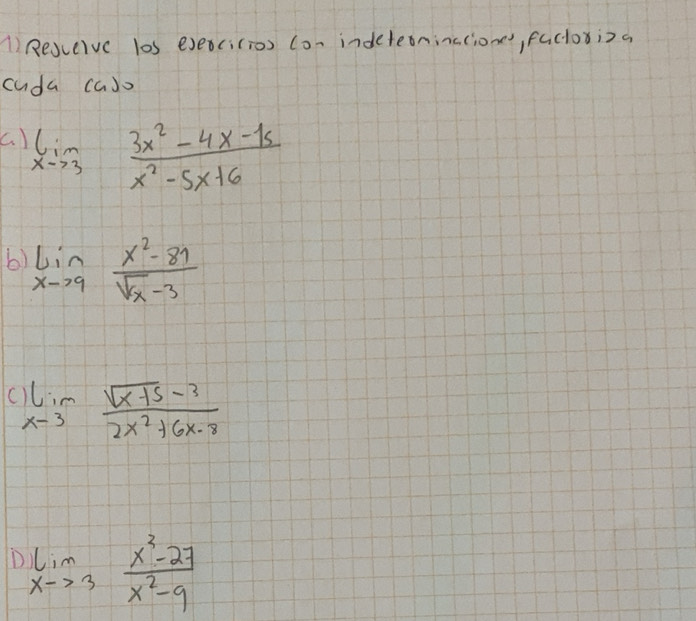 1) Resuelve los ejercicios con indeterminaciones, factoriza
cada caso
a) Lim x->3 (3x² - 4x - 15)/(x² - 5x + 6)
b) Lim x->9 (x² - 81)/(√x - 3)
c) Lim x-3 (√x+5 - 3)/(2x² + 6x - 8)
D) Lim x->3 (x³ - 27)/(x² - 9)